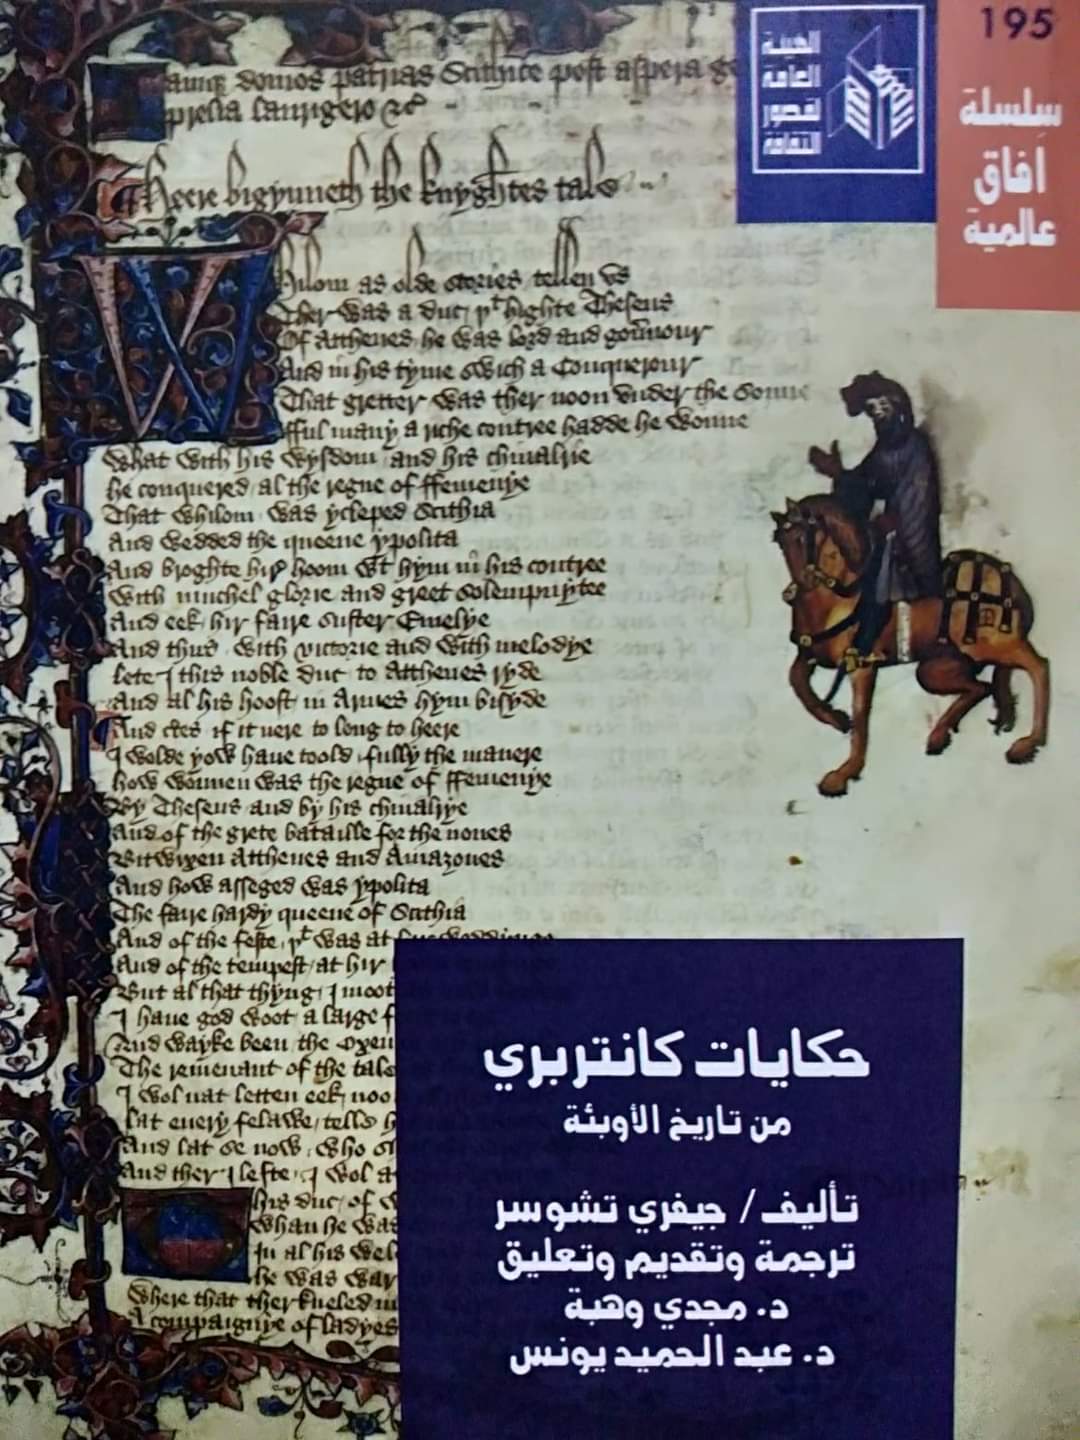 195
سلسلة
آفاق
عالمية
الهيئة
العامة
لقصور
الثقافة
domos patrias Scithice post aspera ge
prelia laurigero &c
Heere bigynneth the knyghtes tale
Whilom as olde stories tellen vs
Ther was a duc þt highte Theseus
Of Atthenes he was lord and gouernour
And in his tyme swich a Conquerour
That gretter was ther noon vnder the Sonne
fful many a riche contree hadde he wonne
What with his wysdom and his chiualrie
he conquered al the regne of ffemenye
That whilom was ycleped Scithia
And wedded the queene ypolita
And broghte hir hoom with hym in his contree
With muchel glorie and greet solempnytee
And eek hir faire suster Emelye
And thus with victorie and with melodye
lete I this noble duc to Atthenes ryde
And al his hoost in Armes hym bisyde
And certes if it nere to long to heere
I wolde yow haue toold fully the manere
how wonnen was the regne of ffemenye
By Theseus and by his chiualrye
And of the grete bataille for the nones
Bitwixen Atthenes and Amazones
And how asseged was ypolita
The faire hardy queene of Scithia
And of the feste þt was at
And of the tempest at hir
But al that thyng I moot
I haue god woot a large f
And wayke been the oxen
The remenant of the tale
I wol nat letten eek noo
lat euery felawe telle h
And lat se now who s
And ther I lefte I wol a
his duc of
Whan he was
In al his wel
he was war
Where that ther kneled in
A compaignye of ladyes
حكايات كانتربري
من تاريخ الأوبئة
تأليف / جيفري تشوسر
ترجمة وتقديم وتعليق
د. مجدي وهبة
د. عبد الحميد يونس